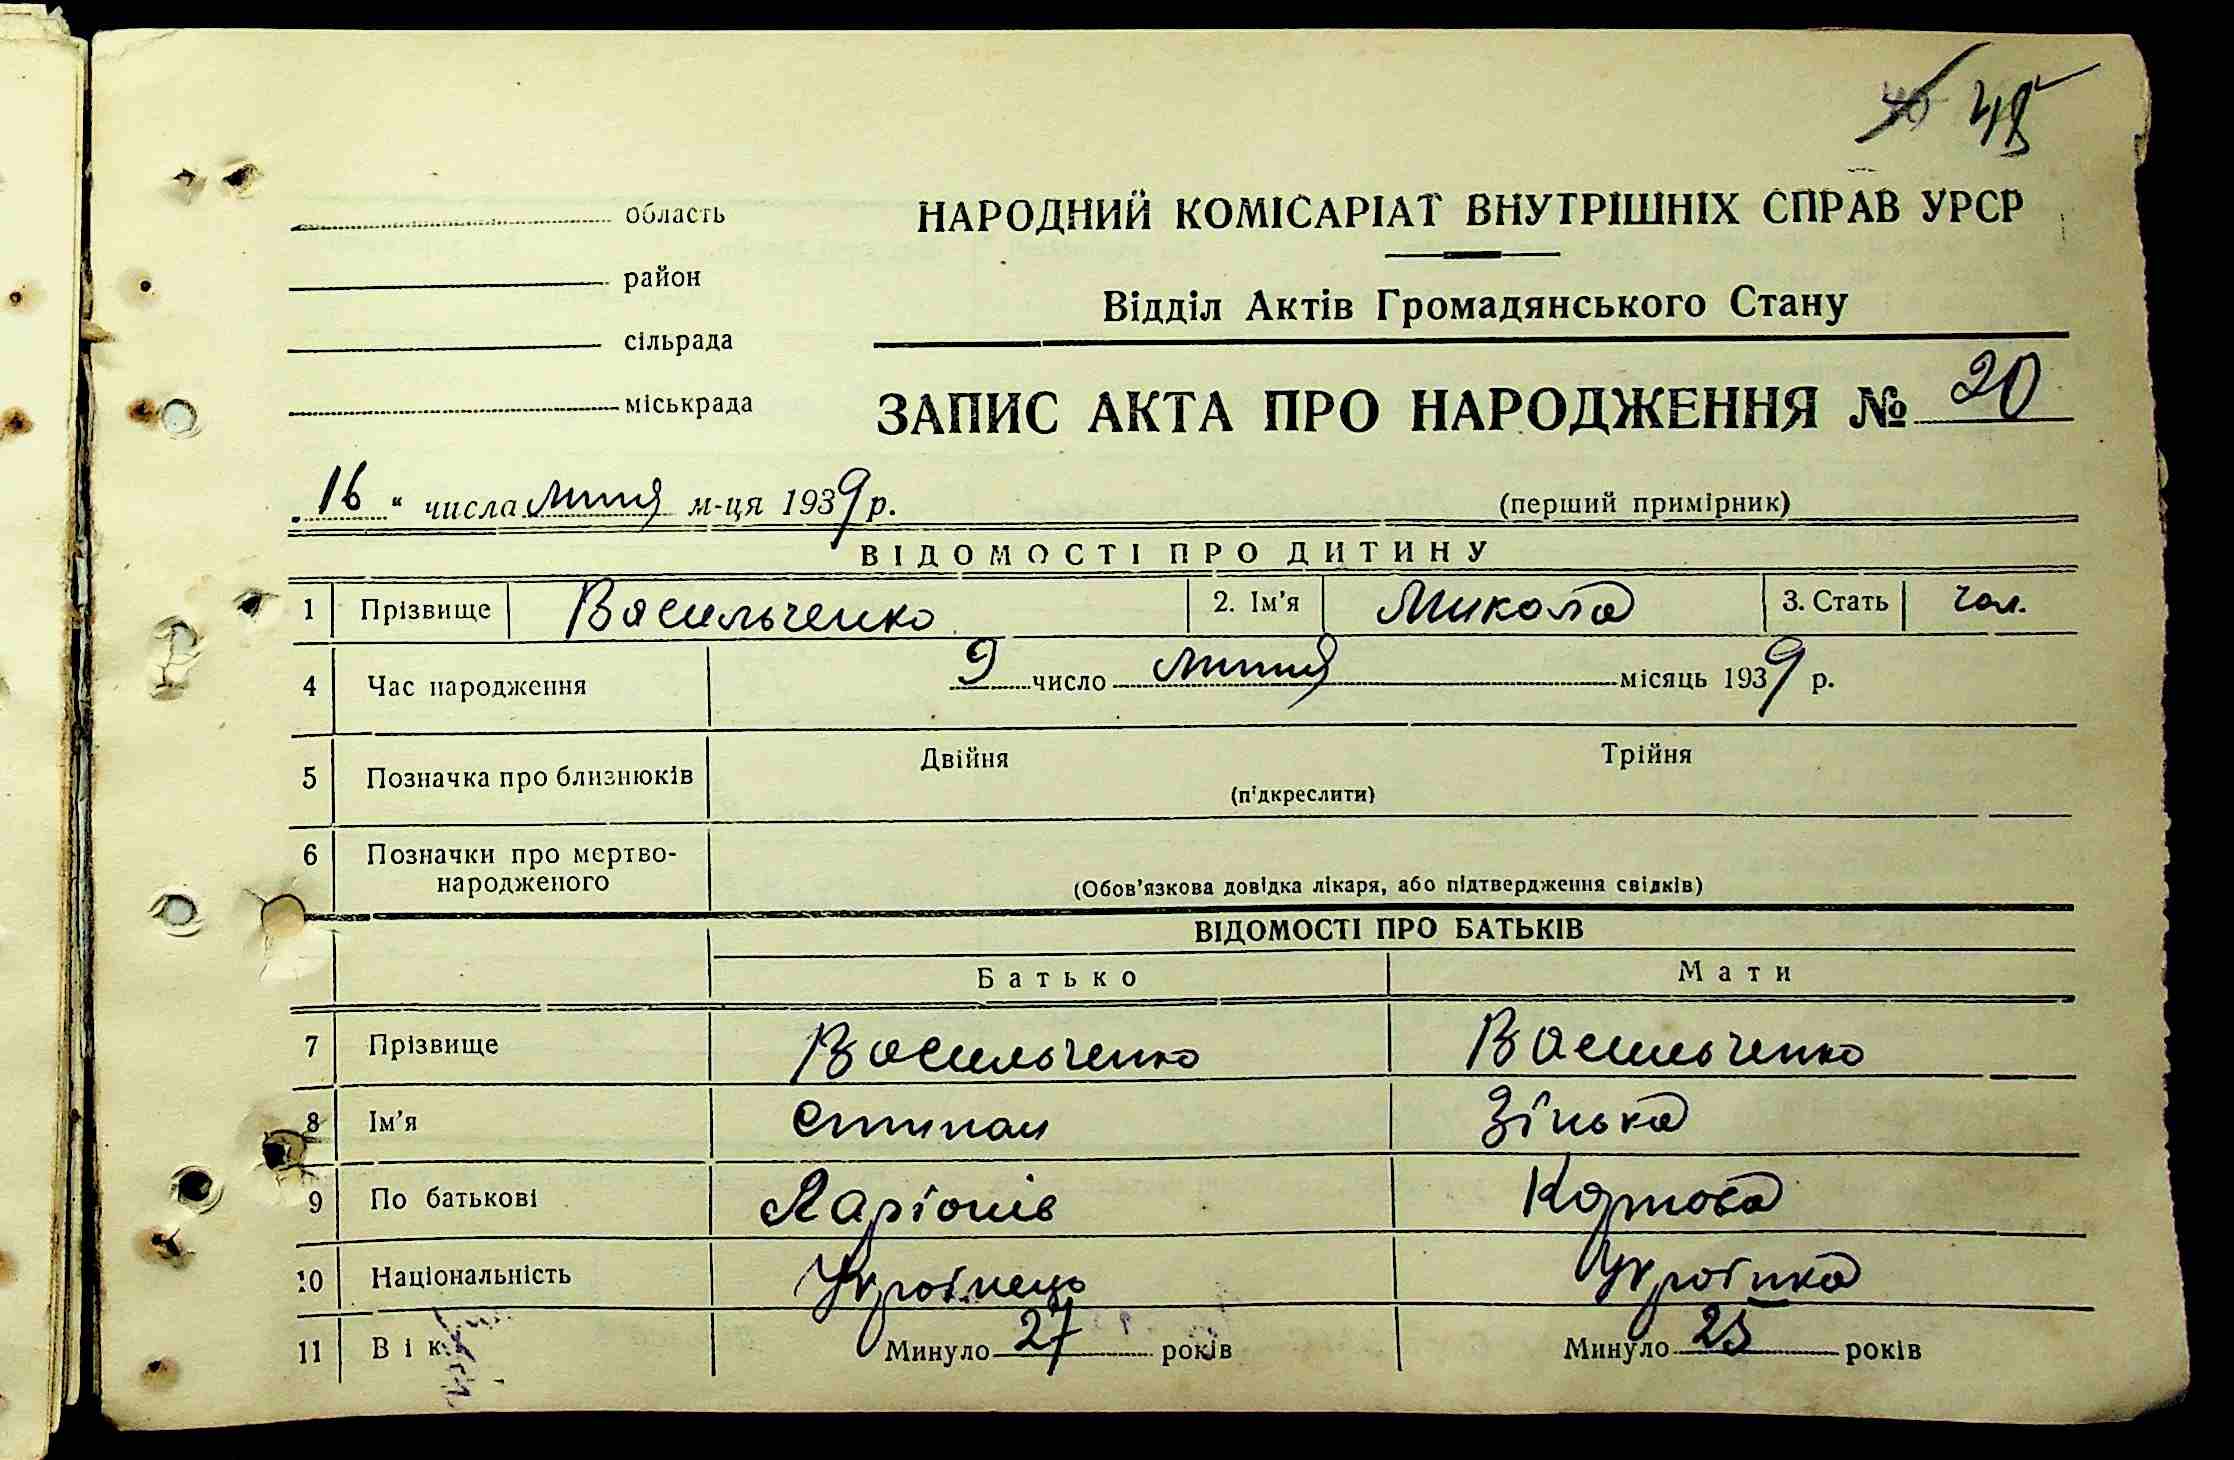 48
область
НАРОДНИЙ КОМІСАРІАТ ВНУТРІШНІХ СПРАВ УРСР
район
Відділ Актів Громадянського Стану
сільрада
міськрада
ЗАПИС АКТА ПРО НАРОДЖЕННЯ № 20
„16“ числа липня м-ця 1939 р.
(перший примірник)
ВІДОМОСТІ ПРО ДИТИНУ
1 Прізвище Васильченко 2. Ім'я Микола 3. Стать чол.
4 Час народження 9 число липня місяць 1939 р.
5 Позначка про близнюків Двійня Трійня
(підкреслити)
6 Позначки про мертво-
народженого
(Обов'язкова довідка лікаря, або підтвердження свідків)
ВІДОМОСТІ ПРО БАТЬКІВ
Батько Мати
7 Прізвище Васильченко Васильченко
8 Ім'я Степан Зінька
9 По батькові Ларіонів Карпова
10 Національність Українець Українка
11 Вік Минуло 27 років Минуло 25 років